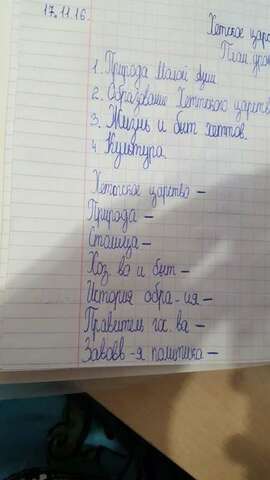 17.11.16.
Хетское царс
План урок
1. Природа Малой Азии
2. Образование Хеттского царств
3. Жизнь и быт хеттов.
4. Культура.
Хетское царство –
Природа –
Столица –
Хоз во и быт –
История обра-ия –
Правитель гос. ва –
Завоев-я политика –